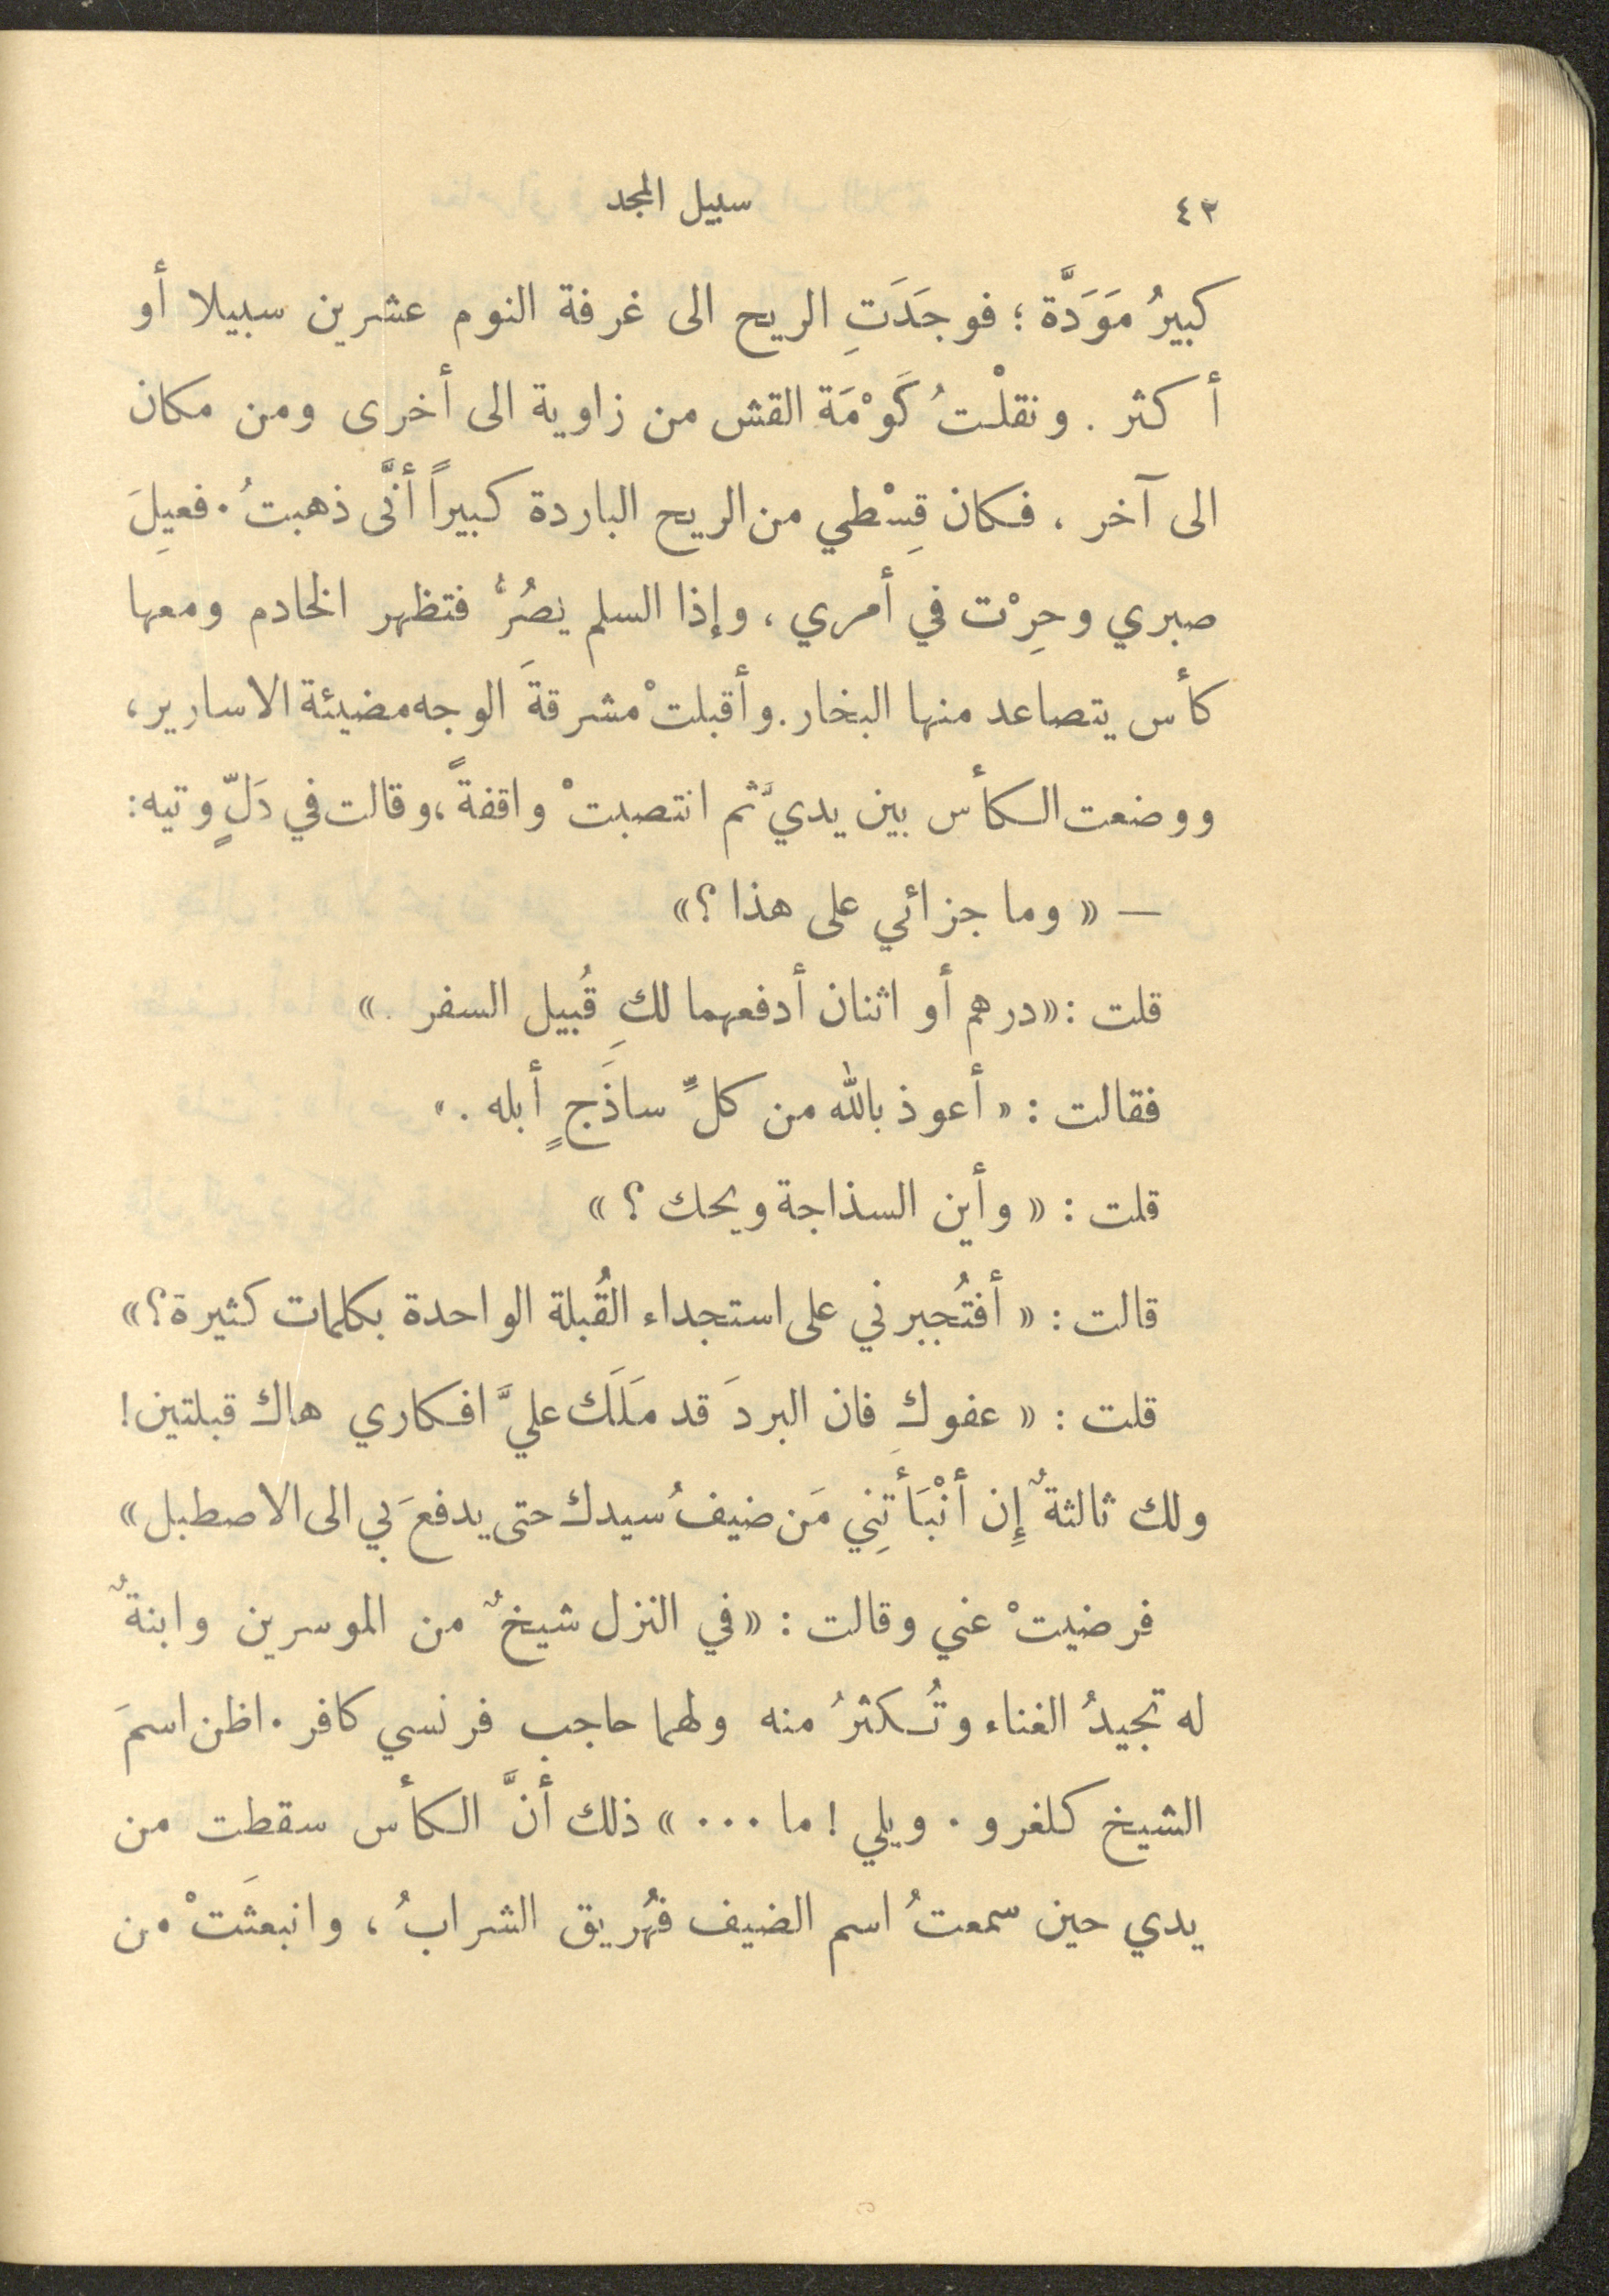 ٤٢ سبيل المجد
كبيرُ مَوَدَّة ؛ فوجَدَتِ الريح الى غرفة النوم عشرين سبيلا أو
أكثر . ونقلْتُ كَوْمَة القش من زاوية الى أخرى ومن مكان
الى آخر ، فكان قِسْطي من الريح الباردة كبيراً أنَّى ذهبتُ . فعيِلَ
صبري وحِرْت في أمري ، وإذا السلم يصُرُّ فتظهر الخادم ومعها
كأس يتصاعد منها البخار . وأقبلتْ مشرقةَ الوجه مضيئة الاسارير ،
ووضعت الكأس بين يديَّ ثم انتصبتْ واقفةً ، وقالت في دَلٍّ وتيه :
— « وما جزائي على هذا ؟ »
قلت : « درهم أو اثنان أدفعهما لكِ قُبيل السفر . »
فقالت : « أعوذ بالله من كلِّ ساذَجٍ أبله . »
قلت : « وأين السذاجة ويحك ؟ »
قالت : « أفتُجبرني على استجداء القُبلة الواحدة بكلمات كثيرة ؟ »
قلت : « عفوكِ فان البردَ قد مَلَك عليَّ افكاري هاك قبلتين !
ولك ثالثةٌ إِن أنْبَأتِني مَن ضيفُ سيدك حتى يدفعَ بي الى الاصطبل »
فرضيتْ عني وقالت : « في النزل شيخٌ من الموسرين وابنةٌ
له تجيدُ الغناء وتُكثرُ منه ولهما حاجب فرنسي كافر . اظن اسمَ
الشيخ كلغرو . ويلي ! ما ... » ذلك أنَّ الكأس سقطت من
يدي حين سمعتُ اسم الضيف فهُريق الشرابُ ، وانبعثَتْ من